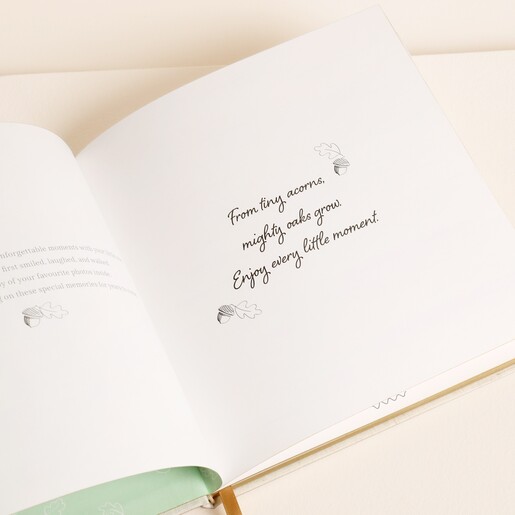 nforgettable moments with your
first smiled, laughed, and walked
y of your favourite photos inside
g on these special memories for years
From tiny acorns,
mighty oaks grow.
Enjoy every little moment.